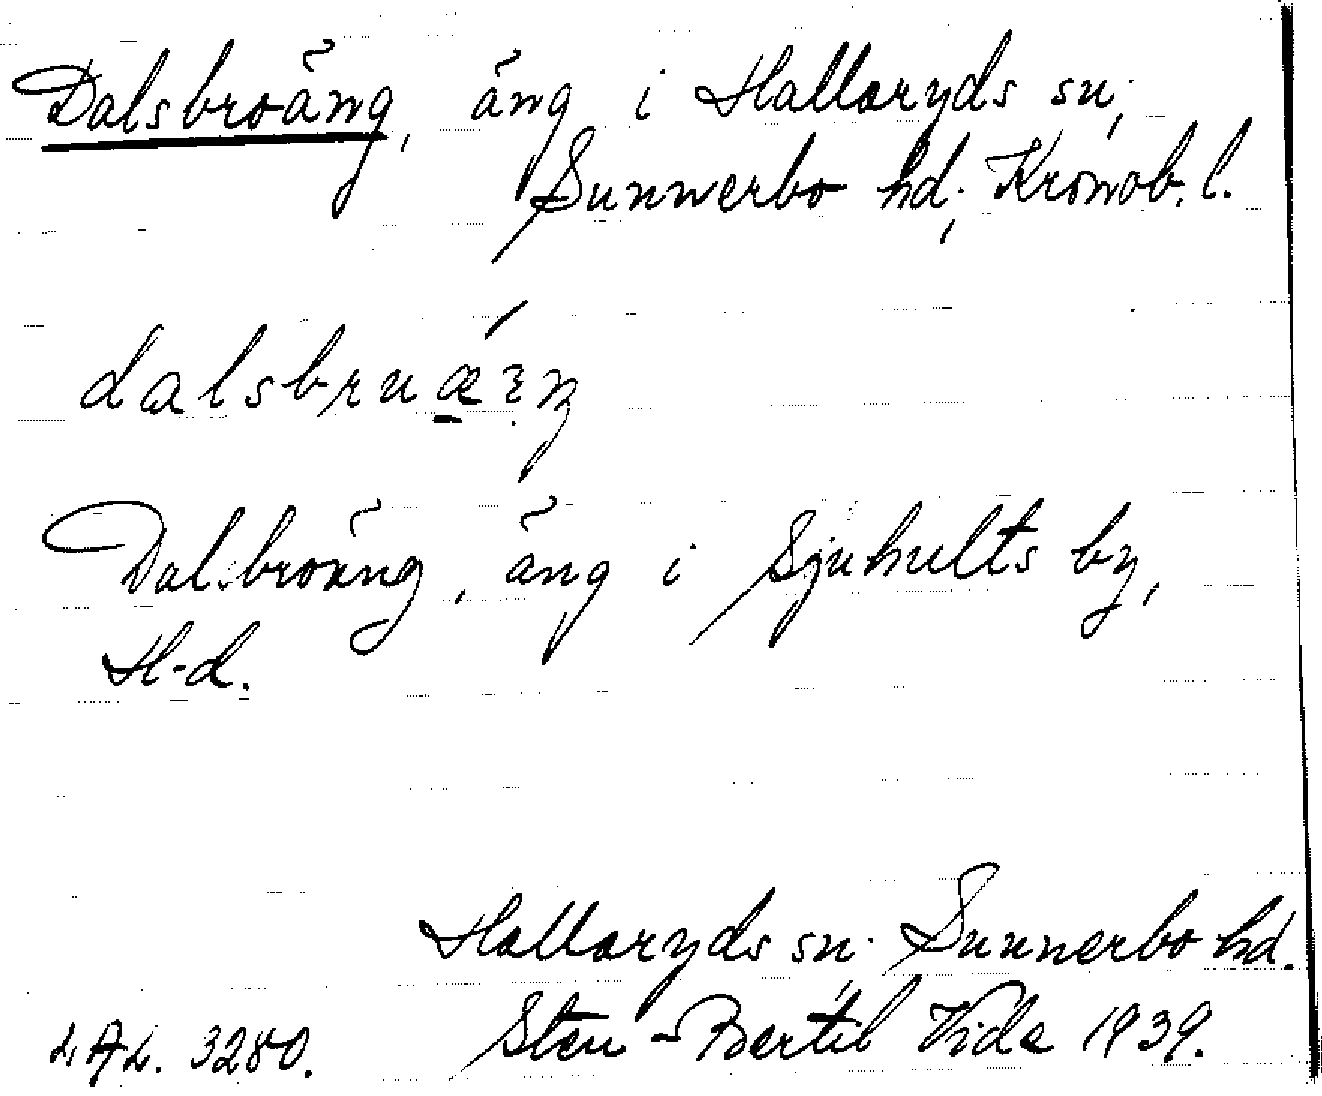 Dalsbroäng, äng i Hallaryds sn,
Sunnerbo hd, Kronob. l.
dalsbruæŋ
Dalsbroäng, äng i Sjuhults by,
H-d.
Hallaryds sn. Sunnerbo hd.
LAL. 3280. Sten-Bertil Vide 1939.